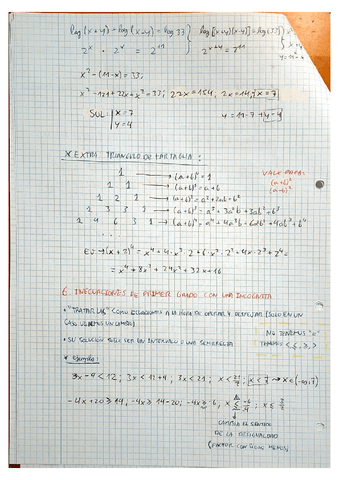 log(x+y) + log(x-y) = log 33 } log[(x+y)(x-y)] = log(33) }
2ˣ · 2ʸ = 2¹¹ } 2ˣ⁺ʸ = 2¹¹ }
x² - (11-x)² = 33;
x² - 121 + 22x - x² = 33; 22x = 154, x = 7
SOL: | x = 7
| y = 4
y = 11 - 7 → y = 4
* EXTRA TRIANGULO DE TARTAGLIA:
1 → (a+b)⁰ = 1
1 1 → (a+b)¹ = a+b
1 2 1 → (a+b)² = a² + 2ab + b²
1 3 3 1 → (a+b)³ = a³ + 3a²b + 3ab² + b³
1 4 6 4 1 → (a+b)⁴ = a⁴ + 4a³b + 6a²b² + 4ab³ + b⁴
VALE PARA:
(a+b)ⁿ
(a-b)ⁿ
EJ → (x+2)⁴ = x⁴ + 4·x³·2 + 6·x²·2² + 4x·2³ + 2⁴ =
= x⁴ + 8x³ + 24x² + 32x + 16
6. INECUACIONES DE PRIMER GRADO CON UNA INCOGNITA
• "TRATARLAS" COMO ECUACIONES A LA HORA DE OPERAR Y DESPEJAR (SOLO EN UN
CASO
• SU SOLUCIÓN SUELE SER UN INTERVALO O UNA SEMIRRECTA
NO TENEMOS "="
TENEMOS <, ≤, >, ≥
* Ejemplo:
3x - 9 < 12; 3x < 12 + 9; 3x < 21; x < 21/3; x < 7 → x ∈ (-∞, 7)
-4x + 20 ≥ 14; -4x ≥ 14 - 20; -4x ≥ -6; x ≤ -6/-4; x ≤ 3/2
CAMBIA EL SENTIDO
DE LA DESIGUALDAD
(FACTOR CON SIGNO MENOS)